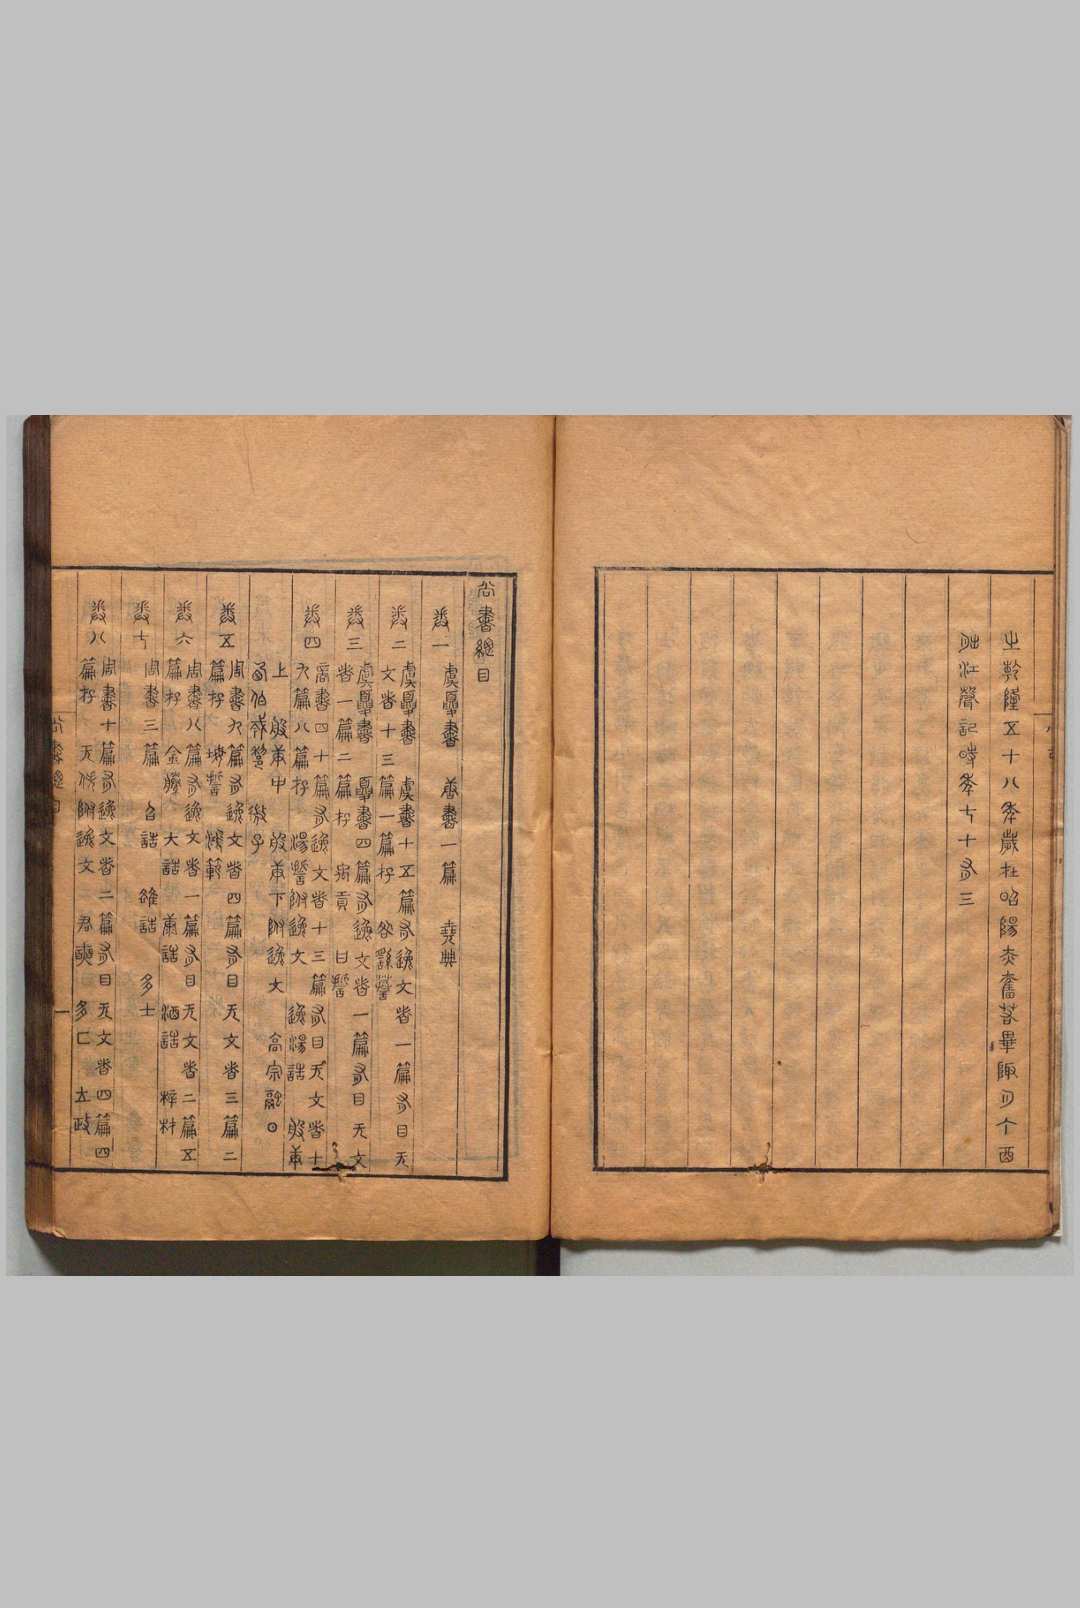 止乾隆五十八年歲在昭陽赤奮若畢陬月丁酉
朏江聲記時年七十有三
尚書總目
卷一 虞夏書 唐書一篇 堯典
卷二 虞夏書 虞書十五篇有逸文者一篇有目无
文者十三篇一篇存 咎繇謨
卷三 虞夏書 夏書四篇有逸文者一篇有目无文
者一篇二篇存 禹貢 甘誓
卷四 商書四十篇有逸文者十三篇有目无文者十
九篇八篇存 湯誓附逸文 逸湯誥 般庚
上 般庚中 般庚下附逸文 高宗融日
西伯𢦟黎 微子
卷五 周書九篇有逸文者四篇有目无文者三篇二
篇存 坶誓 鴻範
卷六 周書八篇有逸文者一篇有目无文者二篇五
篇存 金縢 大誥 康誥 酒誥 梓材
卷七 周書三篇 召誥 雒誥 多士
卷八 周書十篇有逸文者二篇有目无文者四篇四
篇存 无佚附逸文 君奭 多匚 立政
尚書總目 一